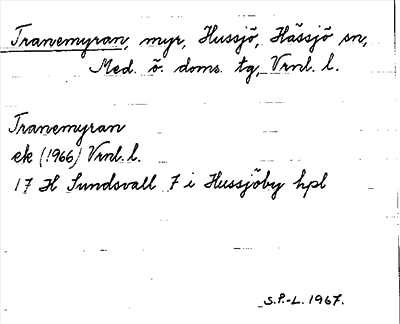 Tranemyran, myr, Hussjö, Hässjö sn,
Med. ö. doms. tg, Vrnl. l.
Tranemyran
ek (1966) Vrnl. l.
17 H Sundsvall 7 i Hussjöby hpl
S.P.-L. 1967.